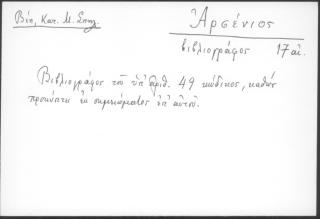 Βέη, Κατ. Μ. Σπηλ.
Ἀρσένιος
βιβλιογράφος 17 αἰ.
Βιβλιογράφος τοῦ ὑπ' ἀριθ. 49 κώδικος, καθὼς
προκύπτει ἐκ σημειώματος ὑπ' αὐτοῦ.